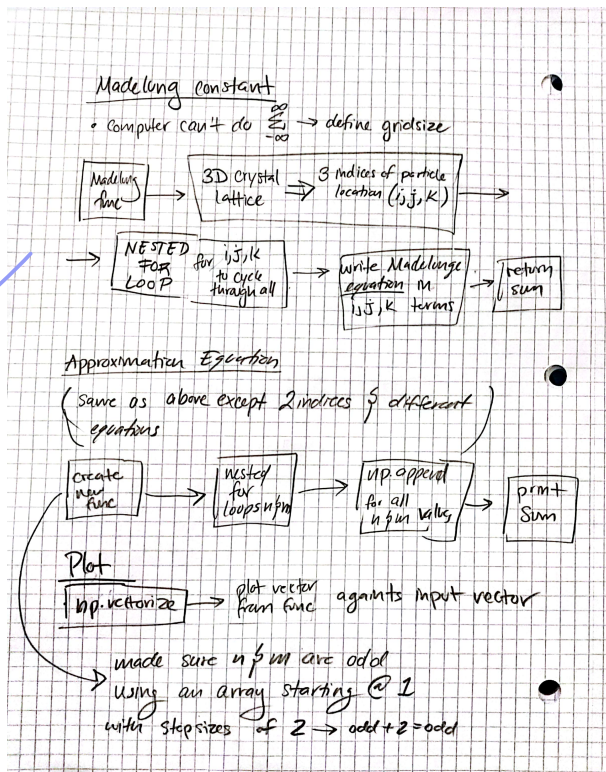 Madelung constant
• computer can't do ∞ Σ -∞ → define gridsize
Madelung func →
3D crystal lattice ⇒ 3 indices of particle location (i, j, k) →
→ NESTED FOR LOOP for i, j, k to cycle through all →
write Madelunge equation in i, j, k terms →
return sum
Approximation Equation
(same as above except 2 indices & different
equations)
create new func →
nested for loops n & m →
np.append for all n & m values →
print sum
Plot
np.vectorize → plot vector from func againts input vector
made sure n & m are odd
using an array starting @ 1
with stepsizes of 2 → odd + 2 = odd